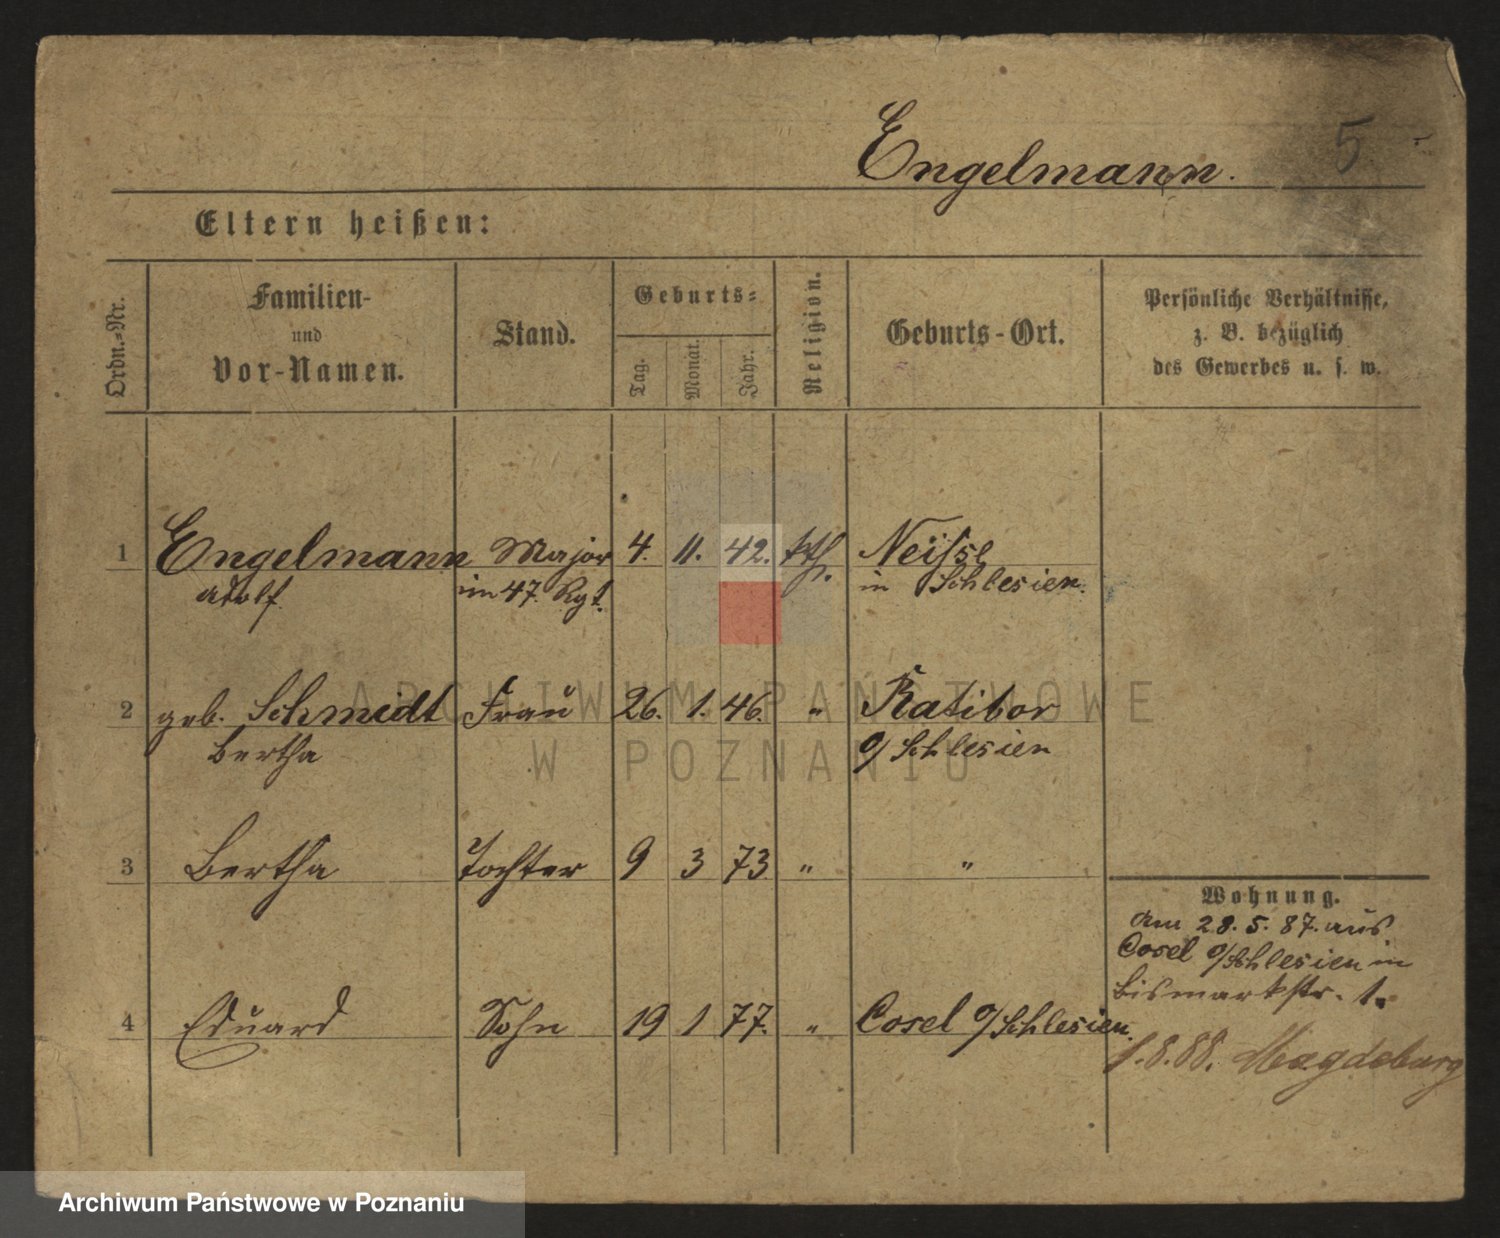 Engelmann. 5
Eltern heißen:
Ordn.-Nr.
Familien-
und
Vor-Namen.
Stand.
Geburts-
Tag.
Monat.
Jahr.
Religion.
Geburts-Ort.
Persönliche Verhältnisse,
z. B. bezüglich
des Gewerbes u. s. w.
1 Engelmann Major 4. 11. 42. kth. Neisse
Adolf im 47. Rgt. in Schlesien.
2 geb. Schmidt Frau 26. 1. 46. " Ratibor
Bertha O/Schlesien
3 Bertha Tochter 9 3 73 " "
4 Eduard Sohn 19 1 77. " Cosel O/Schlesien.
Wohnung.
Am 28. 5. 87. aus
Cosel O/Schlesien in
Bismarkstr. 1.
8.88. Magdeburg
ARCHIWUM PAŃSTWOWE
W POZNANIU
Archiwum Państwowe w Poznaniu